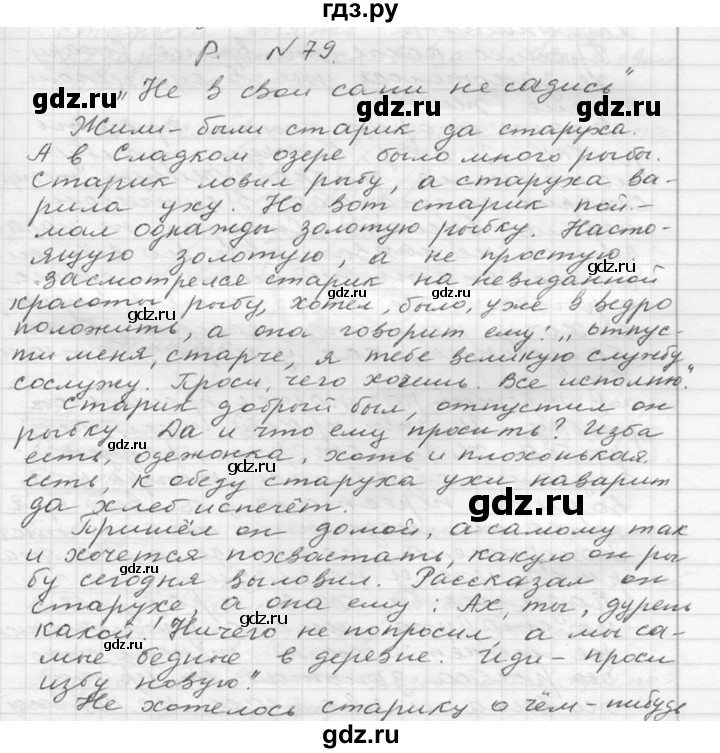 гдз.ру
Р. N 79.
„Не в свои сани не садись"
gdz.ru gdz.ru
Жили-были старик да старуха.
А в Сладком озере было много рыбы.
Старик ловил рыбу, а старуха ва-
рила уху. Но вот старик пой-
мал однажды золотую рыбку. Насто-
ящую золотую, а не простую.
gdz.ru gdz.ru
Засмотрелся старик на невиданной
красоты рыбу, хотел, было, уже в ведро
положить, а она говорит ему: „Отпус-
ти меня, старче, я тебе великую службу
сослужу. Проси, чего хочешь. Все исполню."
Старик добрый был, отпустил он
рыбку. Да и что ему просить? Изба
есть, одежонка, хоть и плохонькая,
gdz.ru gdz.ru
есть, к обеду старуха ухи наварит
да хлеб испечёт.
gdz.ru
Пришёл он домой, а самому так
и хочется похвастать, какую он ры-
бу сегодня выловил. Рассказал он
gdz.ru gdz.ru
старухе, а она ему: Ах, ты, дурень
какой! Ничего не попросил, а мы са-
gdz.ru
мые бедные в деревне. Иди - проси
gdz.ru
избу новую."
Не хотелось старику о чём-нибудь